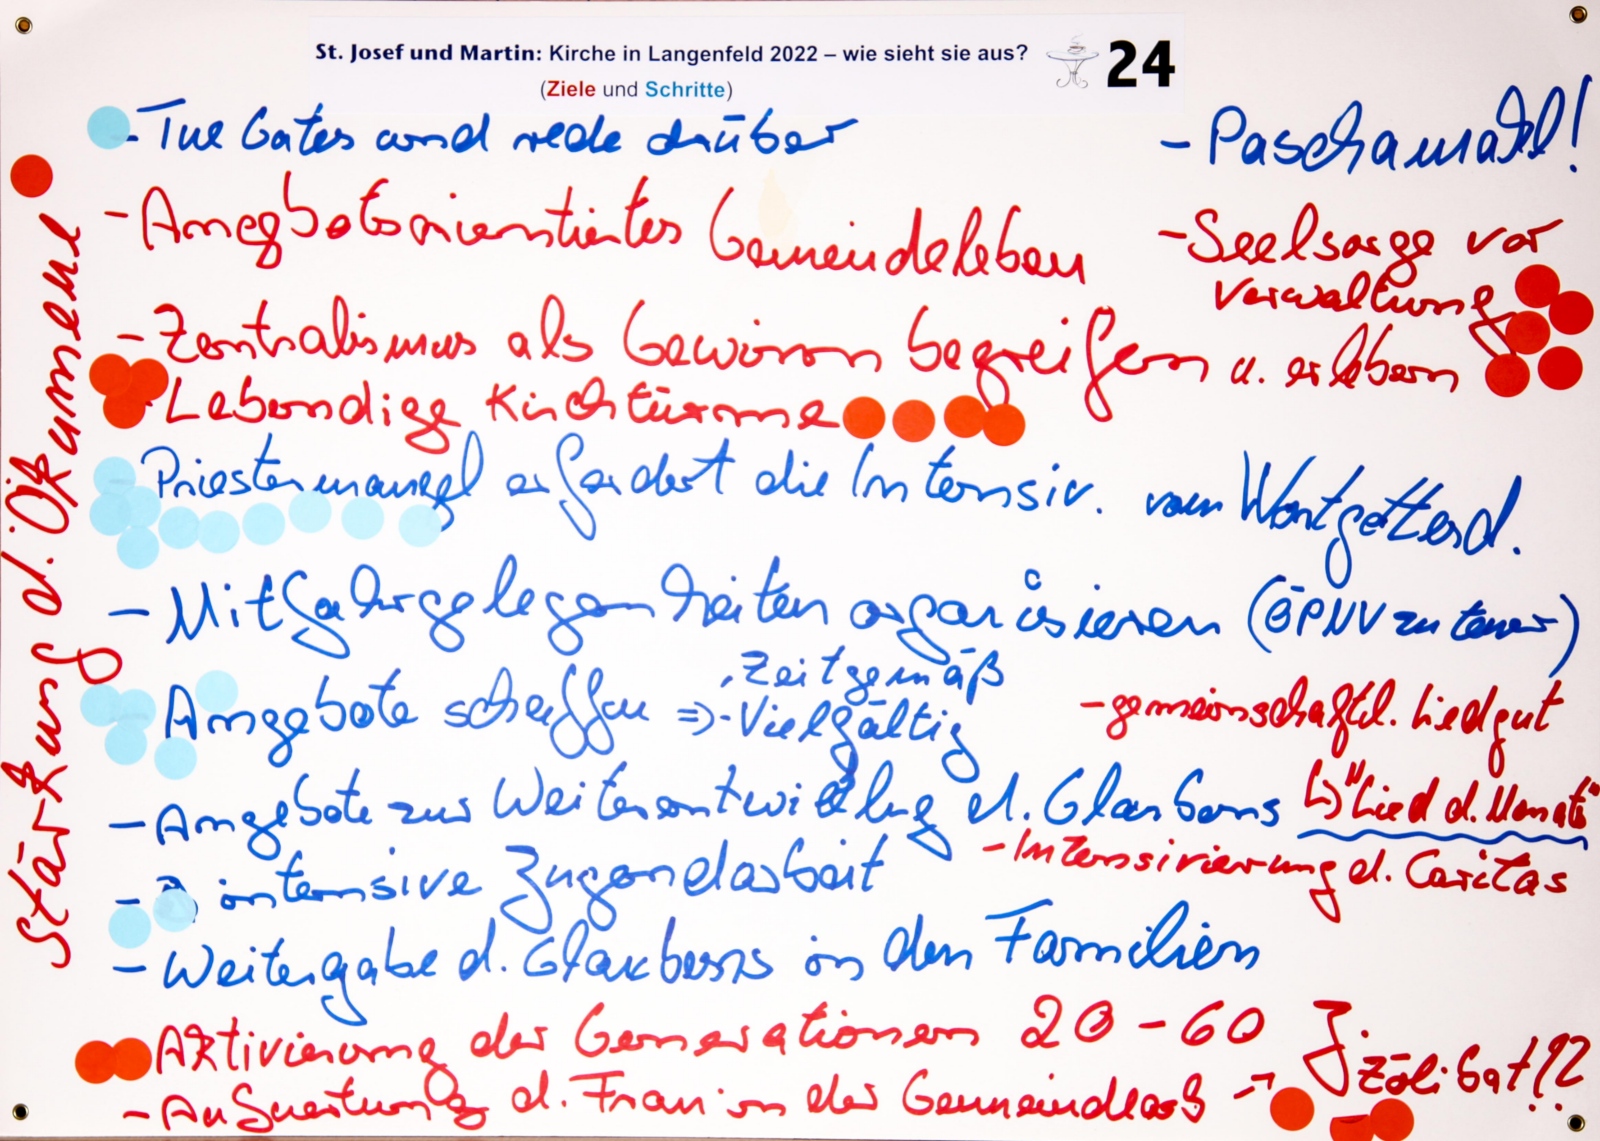 St. Josef und Martin: Kirche in Langenfeld 2022 – wie sieht sie aus?
(Ziele und Schritte)
24
- Tue Gutes und rede drüber
- Paschamahl!
- Angebotsorientiertes Gemeindeleben
- Seelsorge vor
Verwaltung
- Zentralismus als Gewinn begreifen u. erleben
- Lebendige Kirchtürme
Priestermangel erfordert die Intensiv. vom Wortgottesd.
- Mitfahrgelegenheiten organisieren (ÖPNV zu teuer)
Angebote schaffen => - Zeitgemäß
- Vielfältig
- gemeinschaftl. Liedgut
↳ "Lied d. Monats"
- Angebote zur Weiterentwicklung d. Glaubens
- Intensivierung d. Caritas
- intensive Jugendarbeit
- Weitergabe d. Glaubens in den Familien
Aktivierung der Generationen 20 - 60 J.
- Aufwertung d. Frau in der Gemeindearb
→ Zölibat!?
Stärkung d. Ökumene